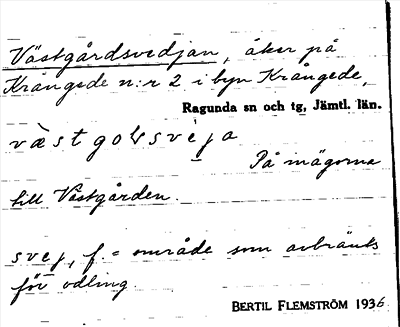 Västgårdsvedjan, åker på
Krångede n:r 2 i byn Krångede,
Ragunda sn och tg, Jämtl. län.
västgolssveja
På mägorna
till Västgården.
svej, f. = område som avbränts
för odling
BERTIL FLEMSTRÖM 1936